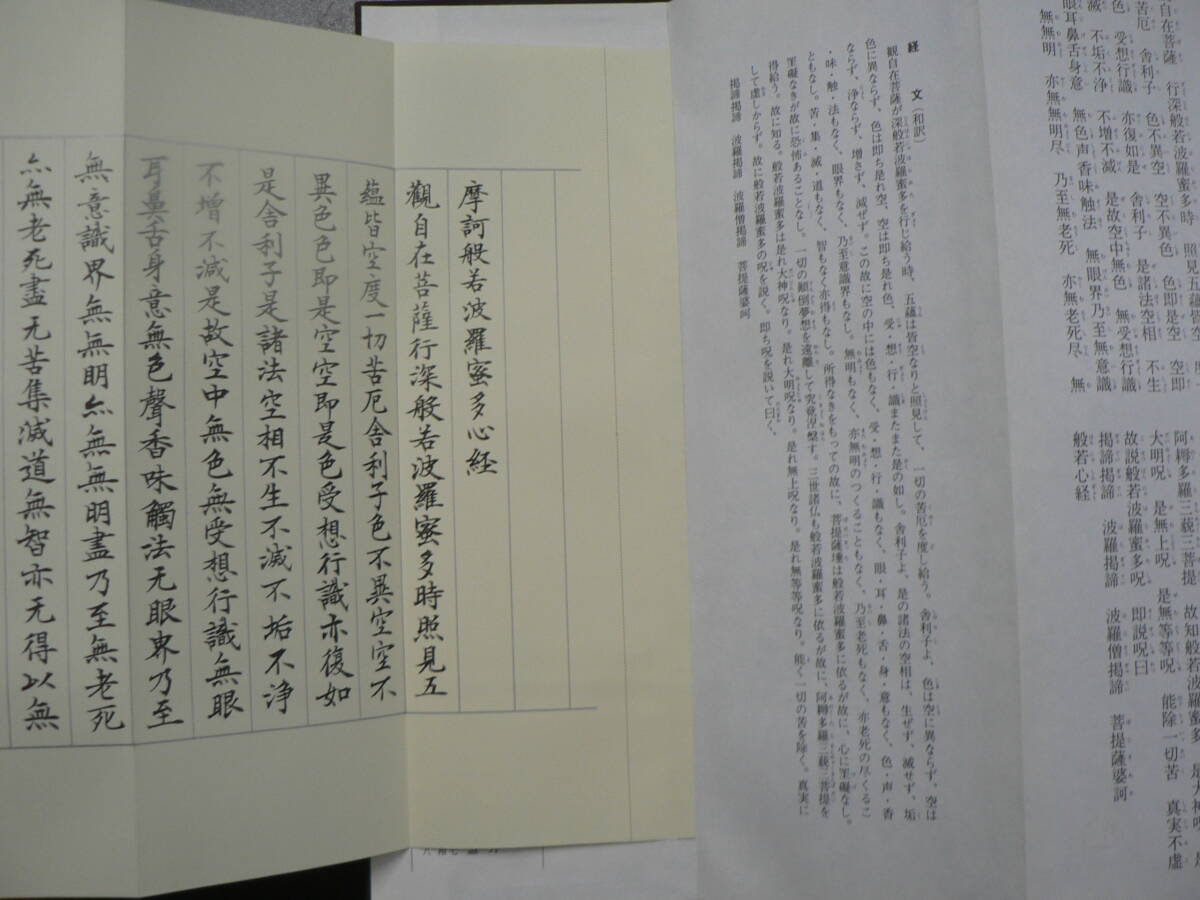 自在菩薩　行深般若波羅蜜多時　照見五蘊皆空　度
苦厄　舎利子　色不異空　空不異色　色即是空　空即
色　受想行識　亦復如是　舎利子　是諸法空相　不生
滅　不垢不浄　不増不減　是故空中無色　無受想行識
眼耳鼻舌身意　無色声香味触法　無眼界乃至無意識
無無明　亦無無明尽　乃至無老死　亦無老死尽　無
阿耨多羅三藐三菩提　故知般若波羅蜜多　是大神呪　是
大明呪　是無上呪　是無等等呪　能除一切苦　真実不虚
故説般若波羅蜜多呪　即説呪曰
掲諦掲諦　波羅掲諦　波羅僧掲諦　菩提薩婆訶
般若心経
経　文（和訳）
観自在菩薩が深般若波羅蜜多を行じ給う時、五蘊は皆空なりと照見して、一切の苦厄を度し給う。舎利子よ、色は空に異ならず、空は
色に異ならず、色は即ち是れ空、空は即ち是れ色。受・想・行・識またまた是の如し。舎利子よ、是の諸法の空相は、生ぜず、滅せず、垢
ならず、浄ならず、増さず、減ぜず。この故に空の中には色もなく、受・想・行・識もなく、眼・耳・鼻・舌・身・意もなく、色・声・香
・味・触・法もなく、眼界もなく、乃至意識界もなし。無明もなく、亦無明のつくることもなく、乃至老死もなく、亦老死の尽くるこ
ともなし。苦・集・滅・道もなく、智もなく亦得もなし。所得なきをもっての故に、菩提薩埵は般若波羅蜜多に依るが故に、心に罣礙なし。
罣礙なきが故に恐怖あることなし。一切の顛倒夢想を遠離して究竟涅槃す。三世諸仏も般若波羅蜜多に依るが故に、阿耨多羅三藐三菩提を
得給う。故に知る。般若波羅蜜多は是れ大神呪なり。是れ大明呪なり。是れ無上呪なり。是れ無等等呪なり。能く一切の苦を除く。真実に
して虚しからず。故に般若波羅蜜多の呪を説く。即ち呪を説いて曰く、
掲諦掲諦　波羅掲諦　波羅僧掲諦　菩提薩婆訶
摩訶般若波羅蜜多心経
觀自在菩薩行深般若波羅蜜多時照見五
蘊皆空度一切苦厄舍利子色不異空空不
異色色即是空空即是色受想行識亦復如
是舍利子是諸法空相不生不滅不垢不浄
不增不減是故空中無色無受想行識無眼
耳鼻舌身意無色聲香味觸法无眼界乃至
無意識界無無明亦無無明盡乃至無老死
亦無老死盡无苦集滅道無智亦无得以無